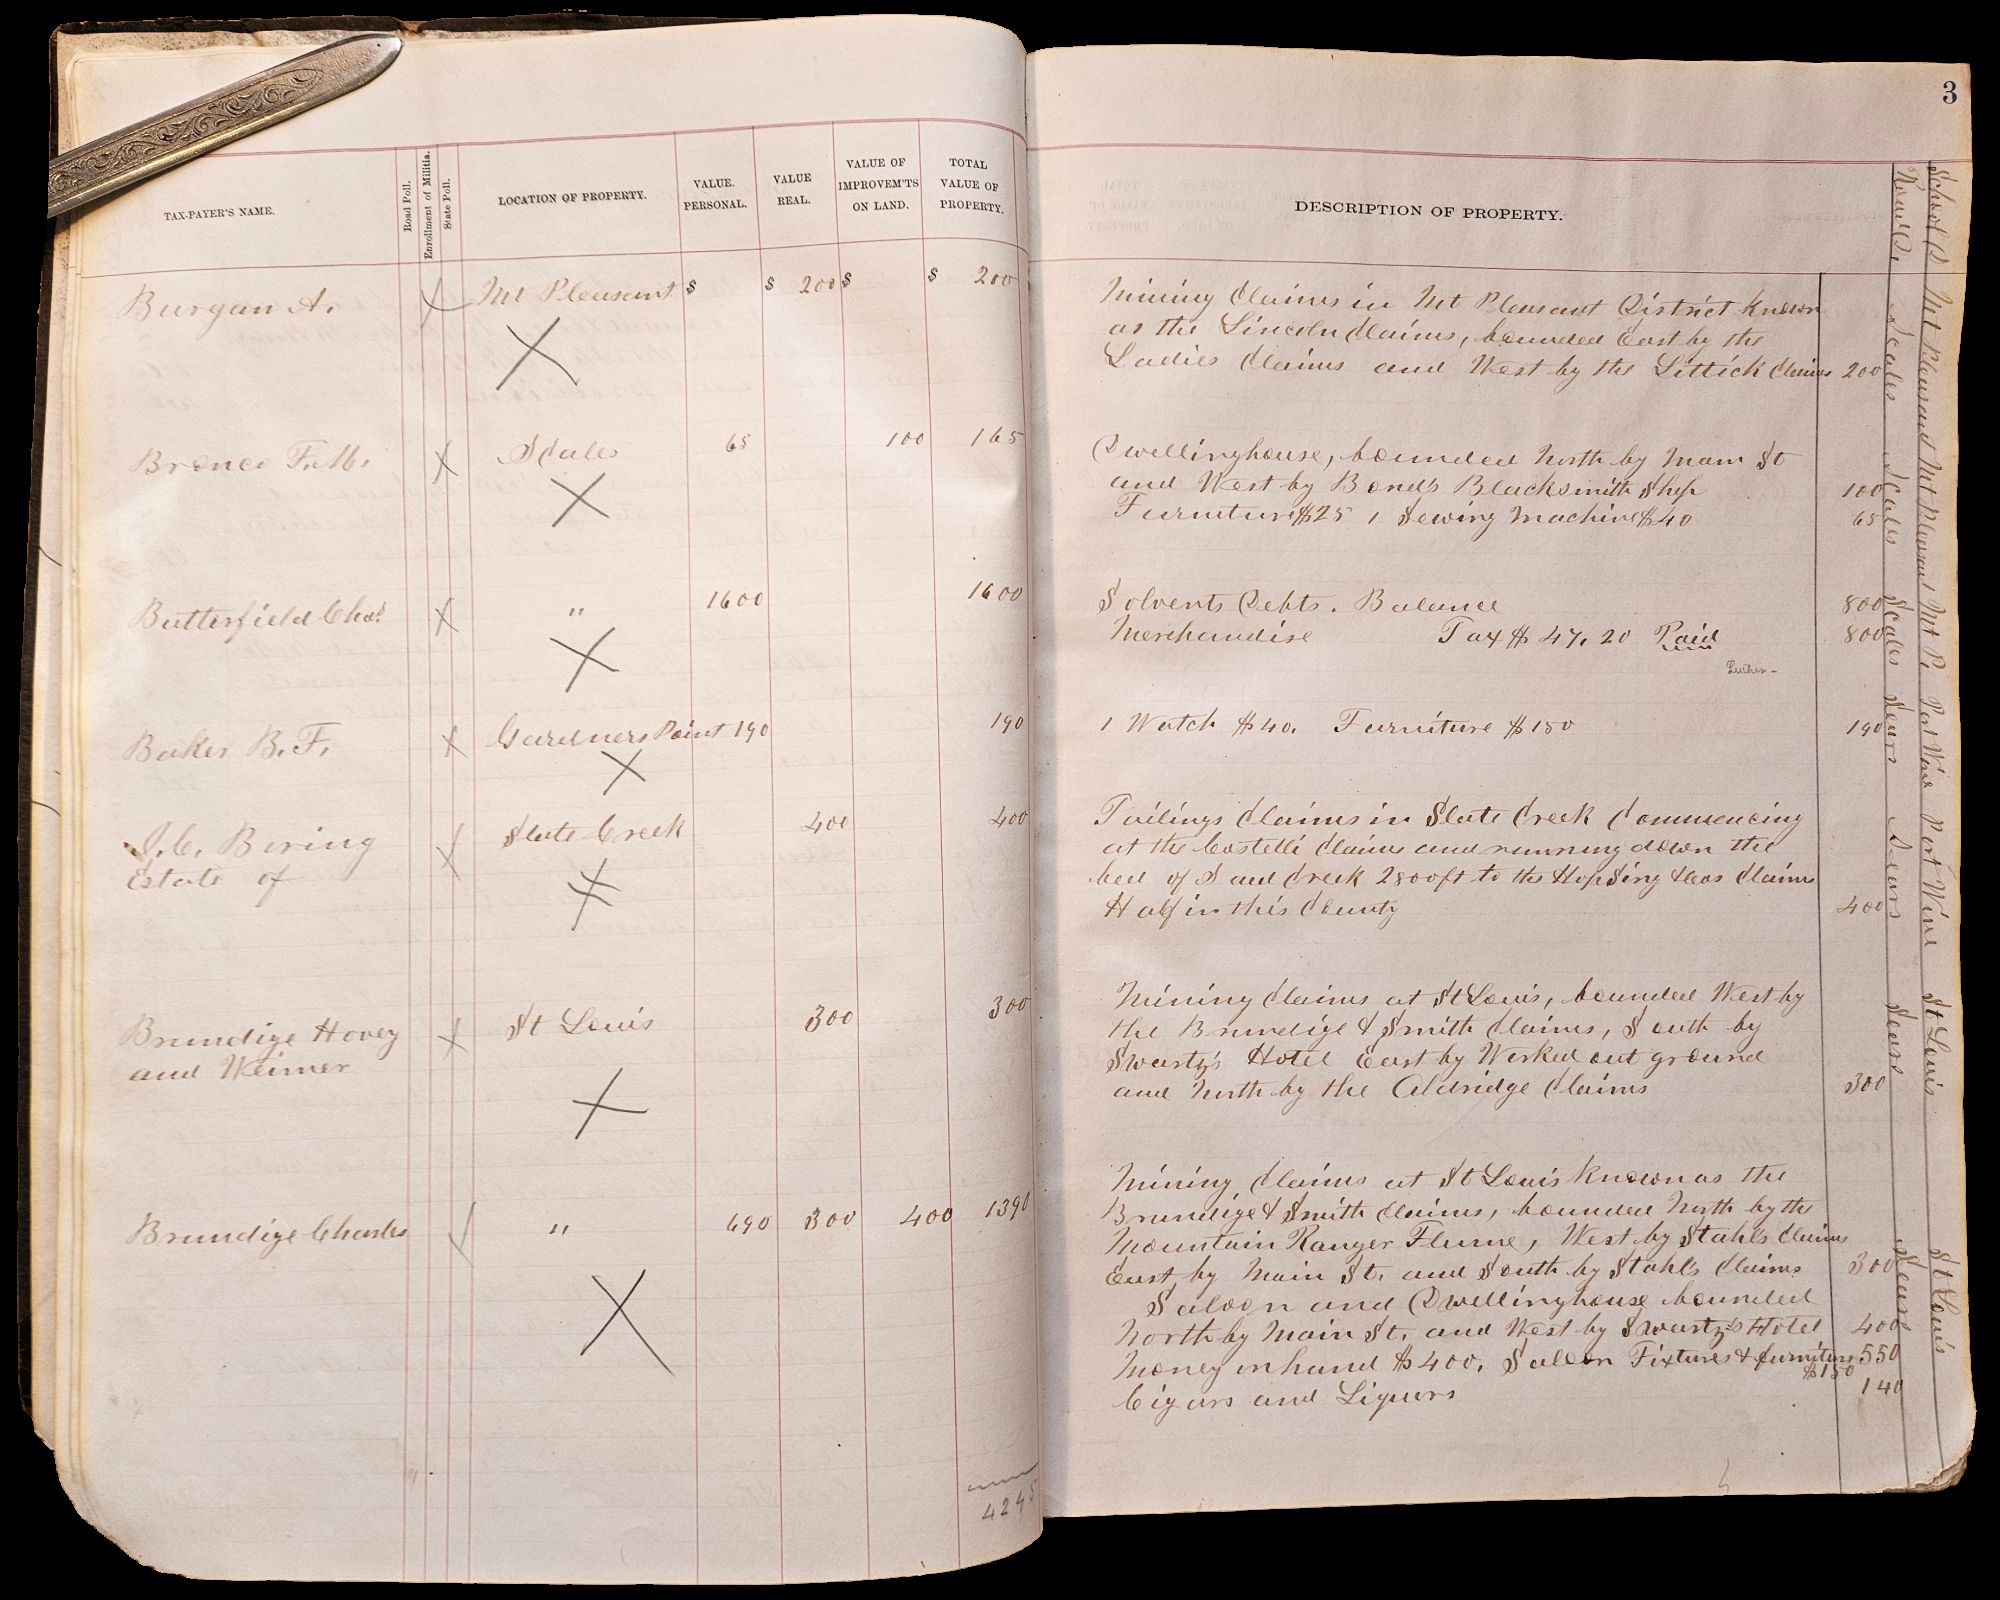 TAX-PAYER'S NAME.
Road Poll.
Enrollment of Militia.
State Poll.
LOCATION OF PROPERTY.
VALUE. PERSONAL.
VALUE REAL.
VALUE OF IMPROVEM'TS ON LAND.
TOTAL VALUE OF PROPERTY.
Burgan A. Mt Pleasant $ $ 200 $ $ 200
Bronco F. Scales 65 100 165
Butterfield Chas. " 1600 1600
Baker B. F. Gardners Point 190 190
J. C. Boring Slate Creek 400 400
Estate of
Brundige Hovey St Louis 300 300
and Weimer
Brundige Charles " 690 300 400 1390
4245
3
DESCRIPTION OF PROPERTY.
Road D. Scales Scales Scales Sears Sears Sears Sears
School D. Mt Pleasant Mt Pleasant Mt P. Port Wine Port Wine St Louis St Louis
Mining Claims in Mt Pleasant District known
as the Lincoln Claims, bounded East by the
Ladies Claims and West by the Littick Claims 200
Dwellinghouse, bounded North by Main St
and West by Bond's Blacksmith Shop 100
Furniture $25 1 Sewing Machine $40 65
Solvents Debts. Balance 800
Merchandise Tax $ 47.20 Paid 800
1 Watch $40. Furniture $150 190
Tailings Claims in Slate Creek Commencing
at the Costelli Claims and running down the
bed of Said Creek 2800 ft to the Hop Sing & Cos Claims
Half in this County 400
Mining Claims at St Louis, bounded West by
the Brundige & Smith Claims, South by
Swartz's Hotel East by Worked out ground
and North by the Aldridge Claims 300
Mining Claims at St Louis known as the
Brundige & Smith Claims, bounded North by the
Mountain Ranger Flume, West by Stahls Claims
East, by Main St. and South by Stahls Claims 300
Saloon and Dwellinghouse bounded
North by Main St. and West by Swartz's Hotel 400
Money on hand $400. Saloon Fixtures & furniture 550
$150
Cigars and Liquors 140